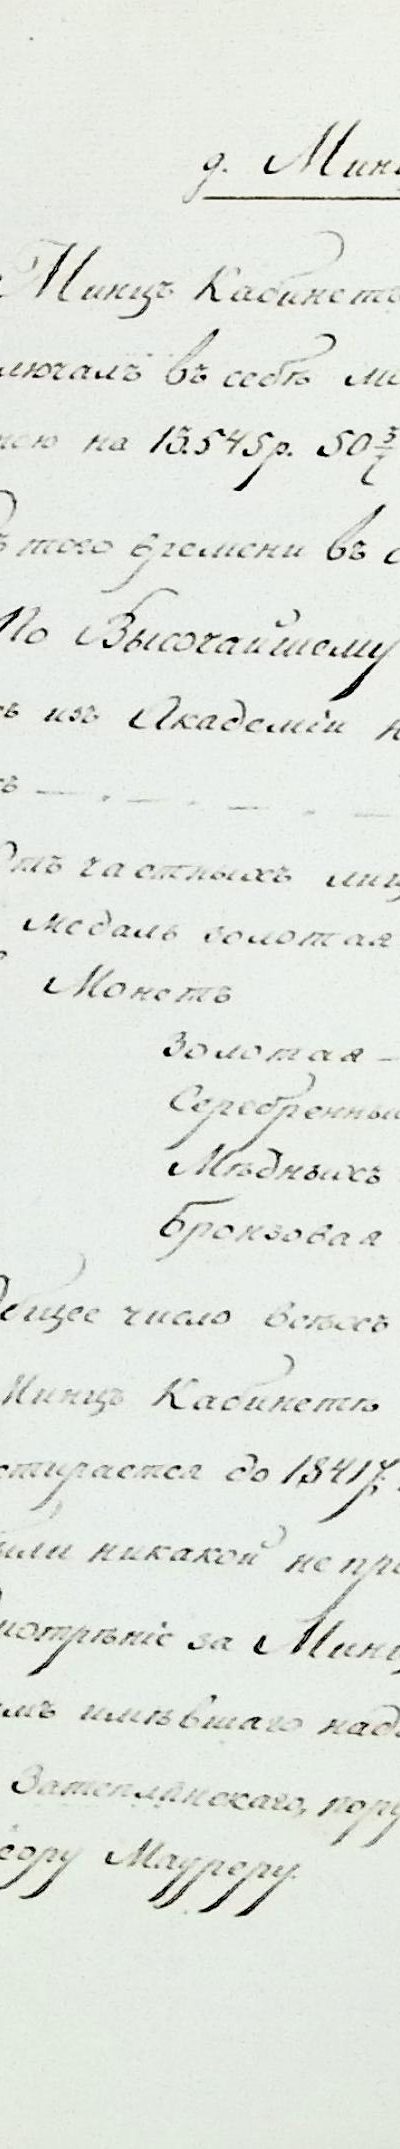 д. Минц
Минцъ Кабинетъ
лючалъ въ себѣ ме
ною на 13.545р. 50 3/7
ъ того времени въ с
По Высочайшему
ъ изъ Академіи н
ъ
Отъ частныхъ лиц
медаль золотая
Монетъ
Золотая —
Серебренны
Мѣдныхъ
Бронзовая
Общее число всѣхъ
Минцъ Кабинетѣ
стирается до 18417,
были никакой не пр
смотрѣніе за Минц
имѣвшаго надз
Затеплинскаго, пору
сору Мауреру.